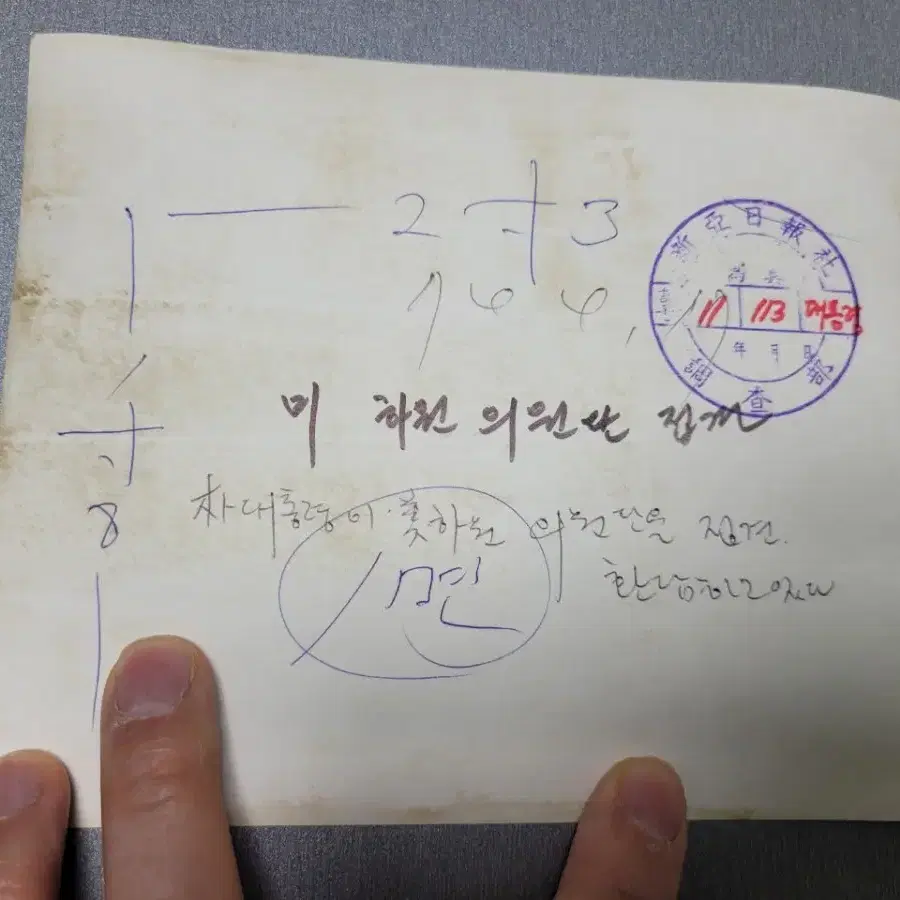 2 寸 3
미 하원 의원단 접견
新亞日報社
11 113 대통령
年 月 日
調査部
寸
8
朴대통령이 美하원 의원단을 접견.
환담하고 있다
1면